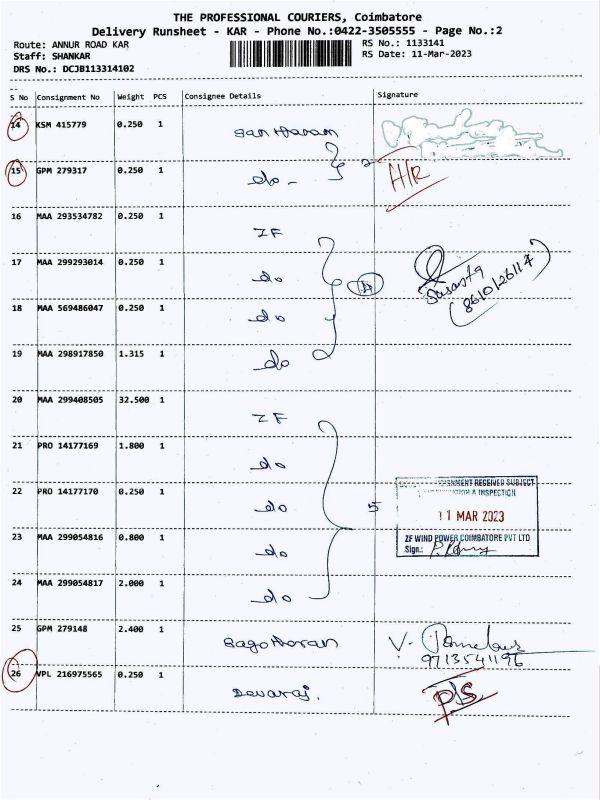 THE PROFESSIONAL COURIERS, Coimbatore
Delivery Runsheet - KAR - Phone No.:0422-3505555 - Page No.:2
Route: ANNUR ROAD KAR RS No.: 1133141
Staff: SHANKAR RS Date: 11-Mar-2023
DRS No.: DCJB113314102
S No Consignment No Weight PCS Consignee Details Signature
14 KSM 415779 0.250 1
15 GPM 279317 0.250 1 do - 2 A/R
16 MAA 293534782 0.250 1 ZF
17 MAA 299293014 0.250 1 do 4
18 MAA 569486047 0.250 1 do
19 MAA 298917850 1.315 1 do
20 MAA 299408505 32.500 1 ZF
21 PRO 14177169 1.800 1 do
22 PRO 14177170 0.250 1 do 5
23 MAA 299054816 0.800 1 do
24 MAA 299054817 2.000 1 do
CONSIGNMENT RECEIVED SUBJECT
& INSPECTION
11 MAR 2023
ZF WIND POWER COIMBATORE PVT LTD
Sign.:
25 GPM 279148 2.400 1 V.
9713541196
26 VPL 216975565 0.250 1 Devaraj. P/S